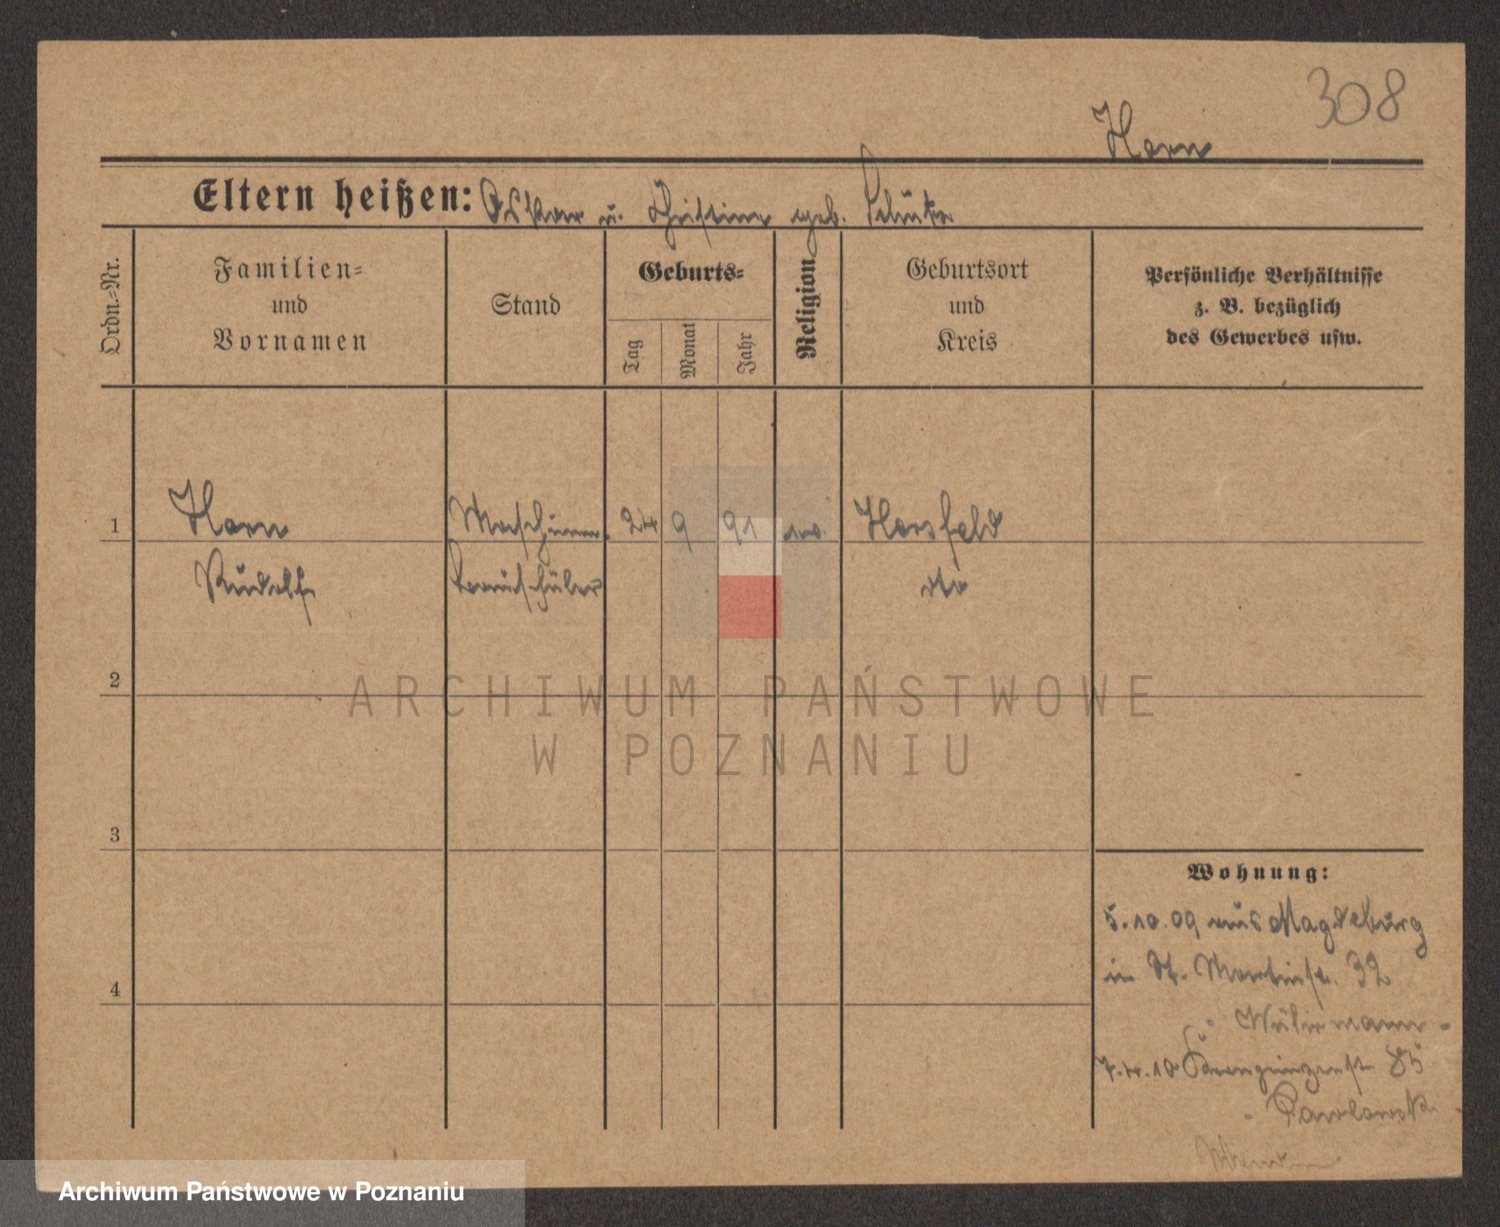 308
Horn
Eltern heißen: Oskar u. Christine geb.
Ordn.-Nr.
Familien-
und
Vornamen
Stand
Geburts-
Tag
Monat
Jahr
Religion
Geburtsort
und
Kreis
Persönliche Verhältnisse
z. B. bezüglich
des Gewerbes usw.
1
Horn
Maschinen
24
9
91
ev.
Harsfeld
Rudolf
bauschüler
dto
2
ARCHIWUM PAŃSTWOWE
W POZNANIU
3
Wohnung:
5.10.09 aus Magdeburg
in St. Martinstr. 32
4
7.4.10 Kronprinzenstr 85
Pawlowsk
Archiwum Państwowe w Poznaniu